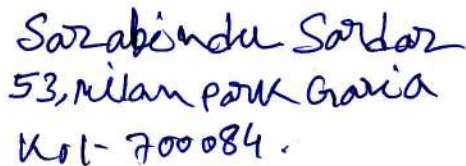 Sarabindu Sardar
53, Milan park Garia
Kol- 700084.